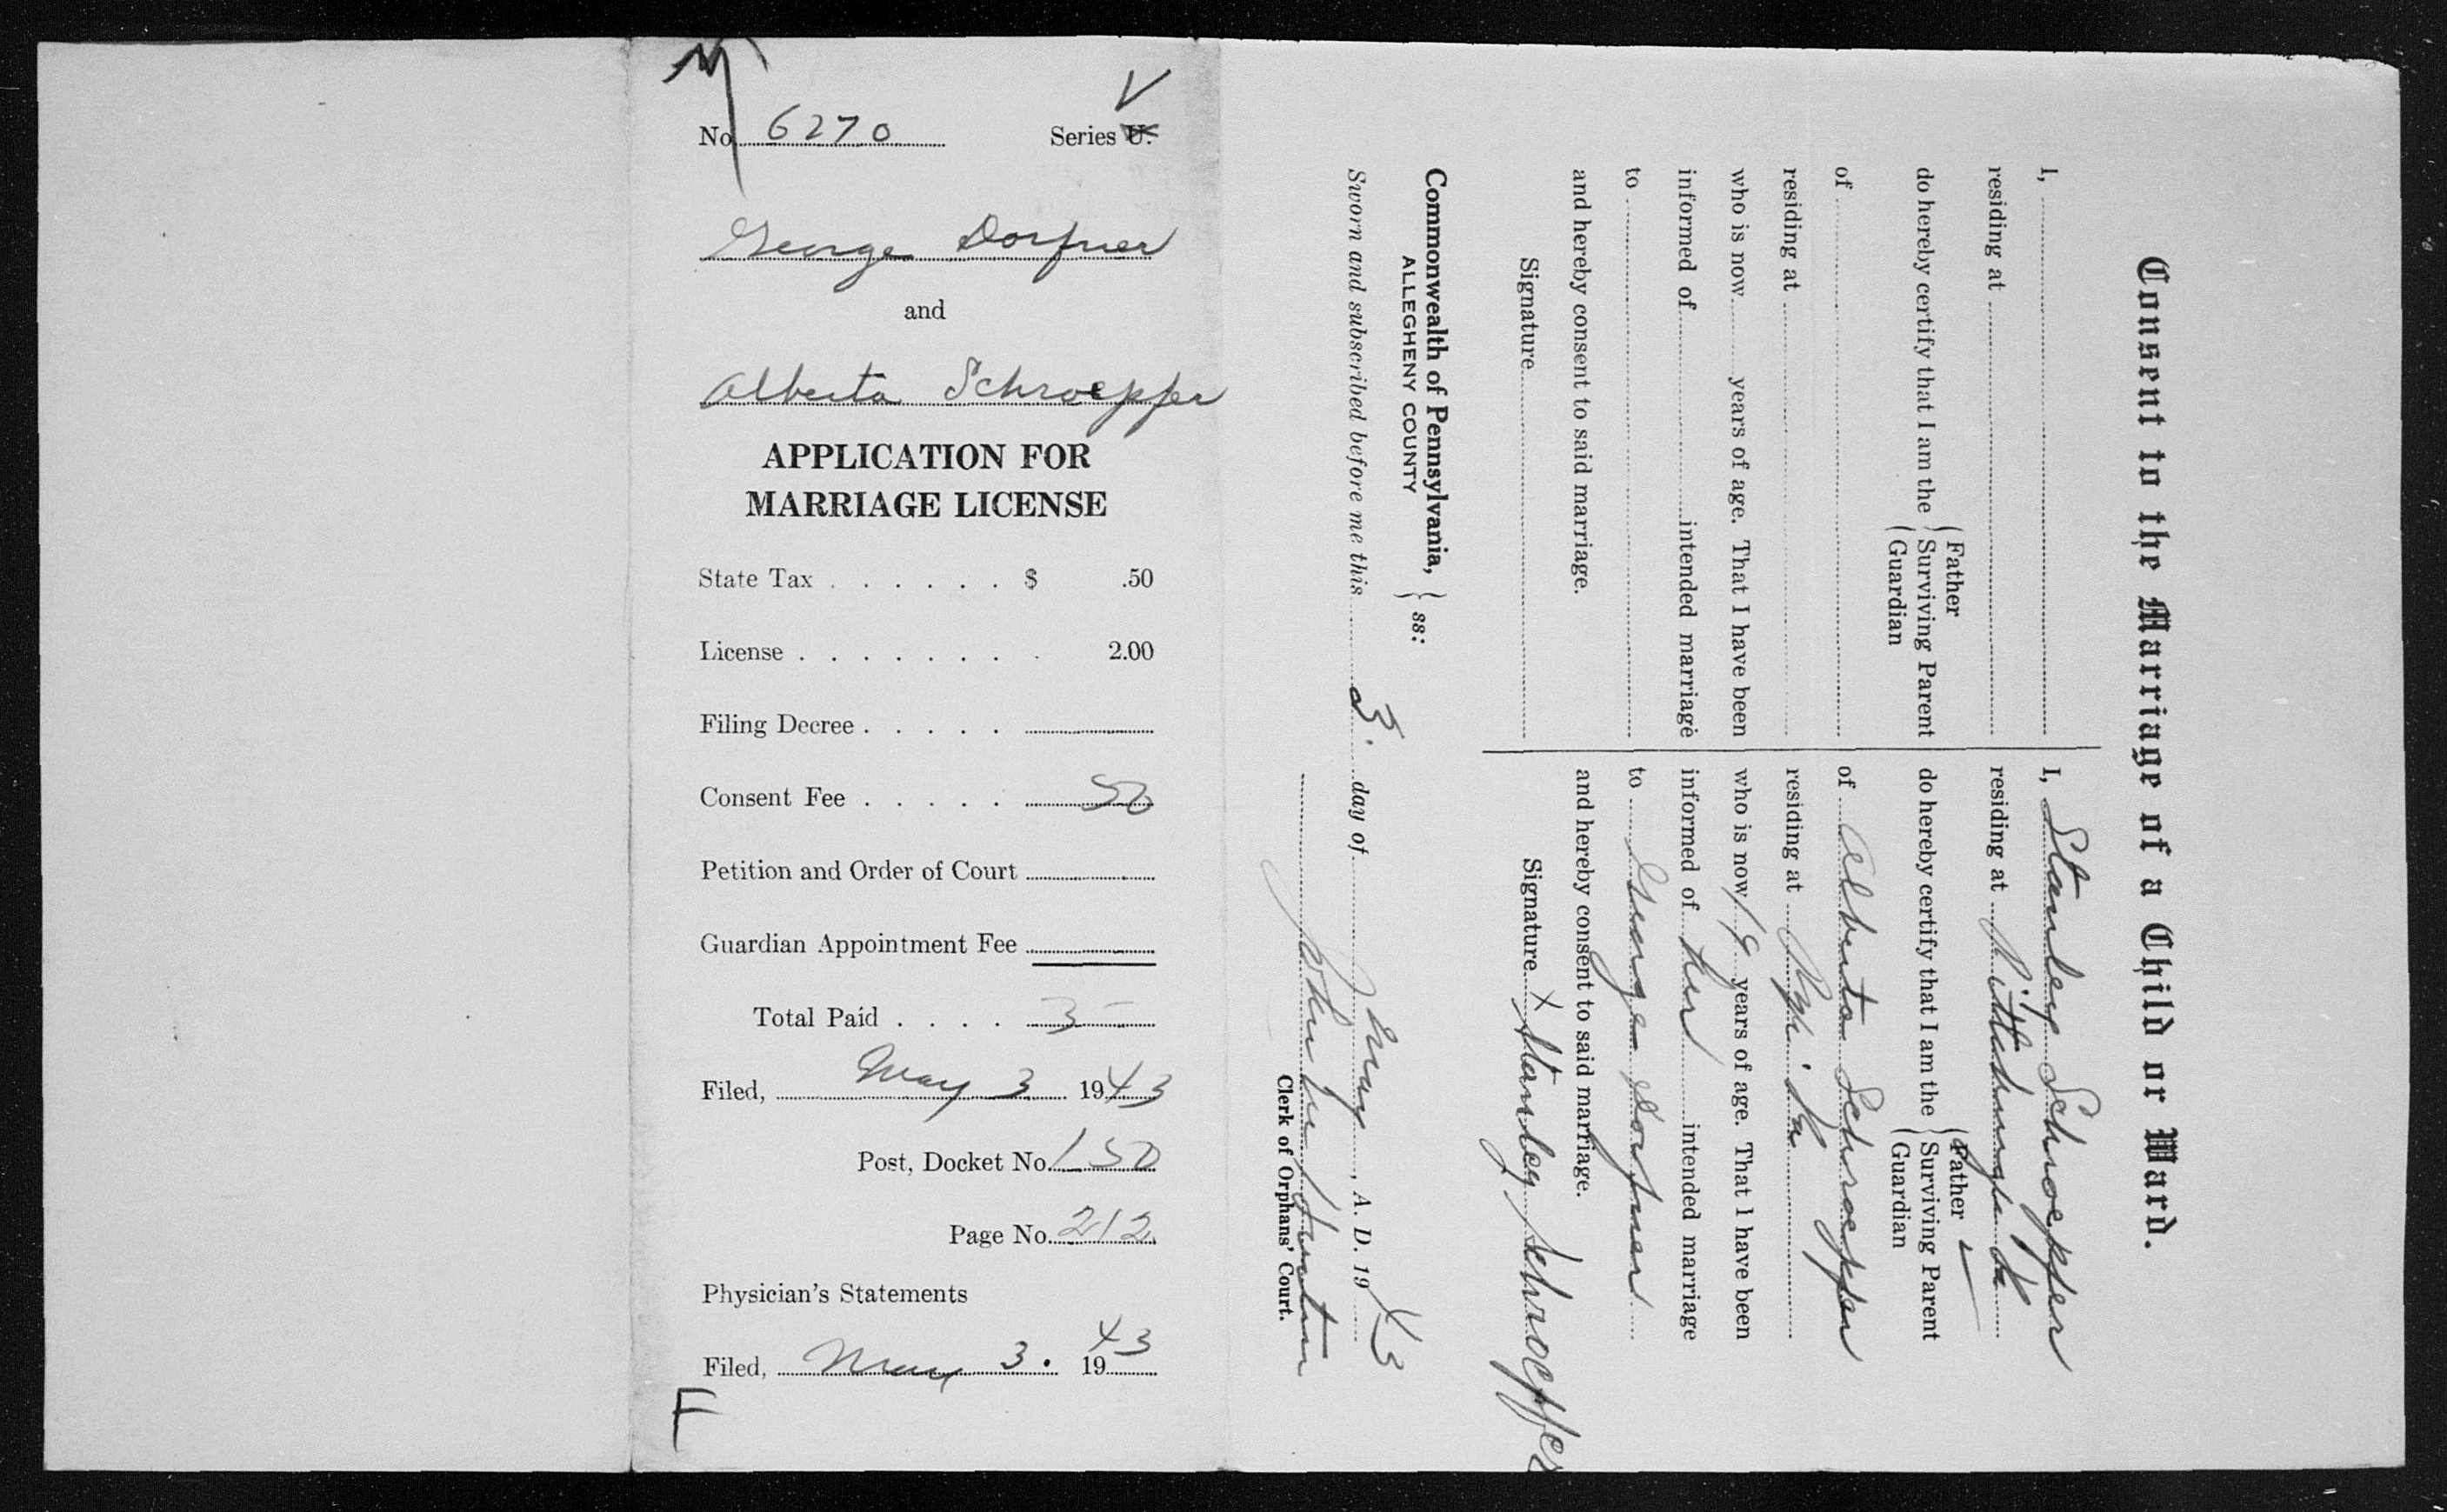 M
V
No 6270 Series U.
George Dorfner
and
Alberta Schroepfer
APPLICATION FOR
MARRIAGE LICENSE
State Tax . . . . . . $ .50
License . . . . . . . . 2.00
Filing Decree . . . . .
Consent Fee . . . . . 50
Petition and Order of Court
Guardian Appointment Fee
Total Paid . . . . 3 –
Filed, May 3 1943
Post, Docket No. 150
Page No. 212
Physician's Statements
Filed, May 3. 1943
F
Consent to the Marriage of a Child or Ward.
I,
residing at
do hereby certify that I am the { Father
Surviving Parent
Guardian
of
residing at
who is now years of age. That I have been
informed of intended marriage
to
and hereby consent to said marriage.
Signature
I, Stanley Schroepfer
residing at Pittsburgh Pa
do hereby certify that I am the { Father ✓
Surviving Parent
Guardian
of Alberta Schroepfer
residing at Pgh. Pa
who is now 19 years of age. That I have been
informed of her intended marriage
to George Dorfner
and hereby consent to said marriage.
Signature X Stanley Schroepfer
Commonwealth of Pennsylvania, } ss:
ALLEGHENY COUNTY
Sworn and subscribed before me this 3. day of May, A. D. 1943
John
Clerk of Orphans' Court.